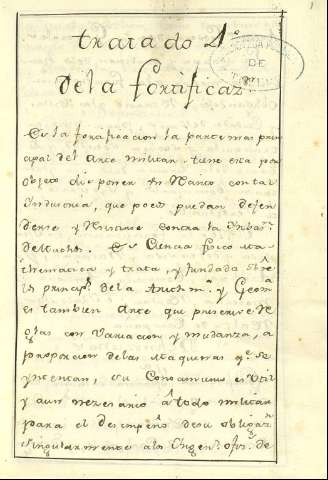 tratado 1º
de la fortificazn
Es la fortificacion la parte mas prin
cipal del Arte militar. tiene esta por
objeto disponer un Recinto con tal
Yndustria, que pocos puedan defen
derse y Resistirse contra la
de Muchos. Es Ciencia fisico Ma
thematica y trata, y fundada sbre
ls princips de la Arithmca y Geoma
es tambien Arte que prescrive Re
glas con Variacion y mudanza, a
proporcion de las Maquinas qe. se
ynventan, su Conocimiento es Util
y aun nezesario a todo militar
para el desempeño de su obligazn
singularmente a los Yngens. ofiz. de
DE
1